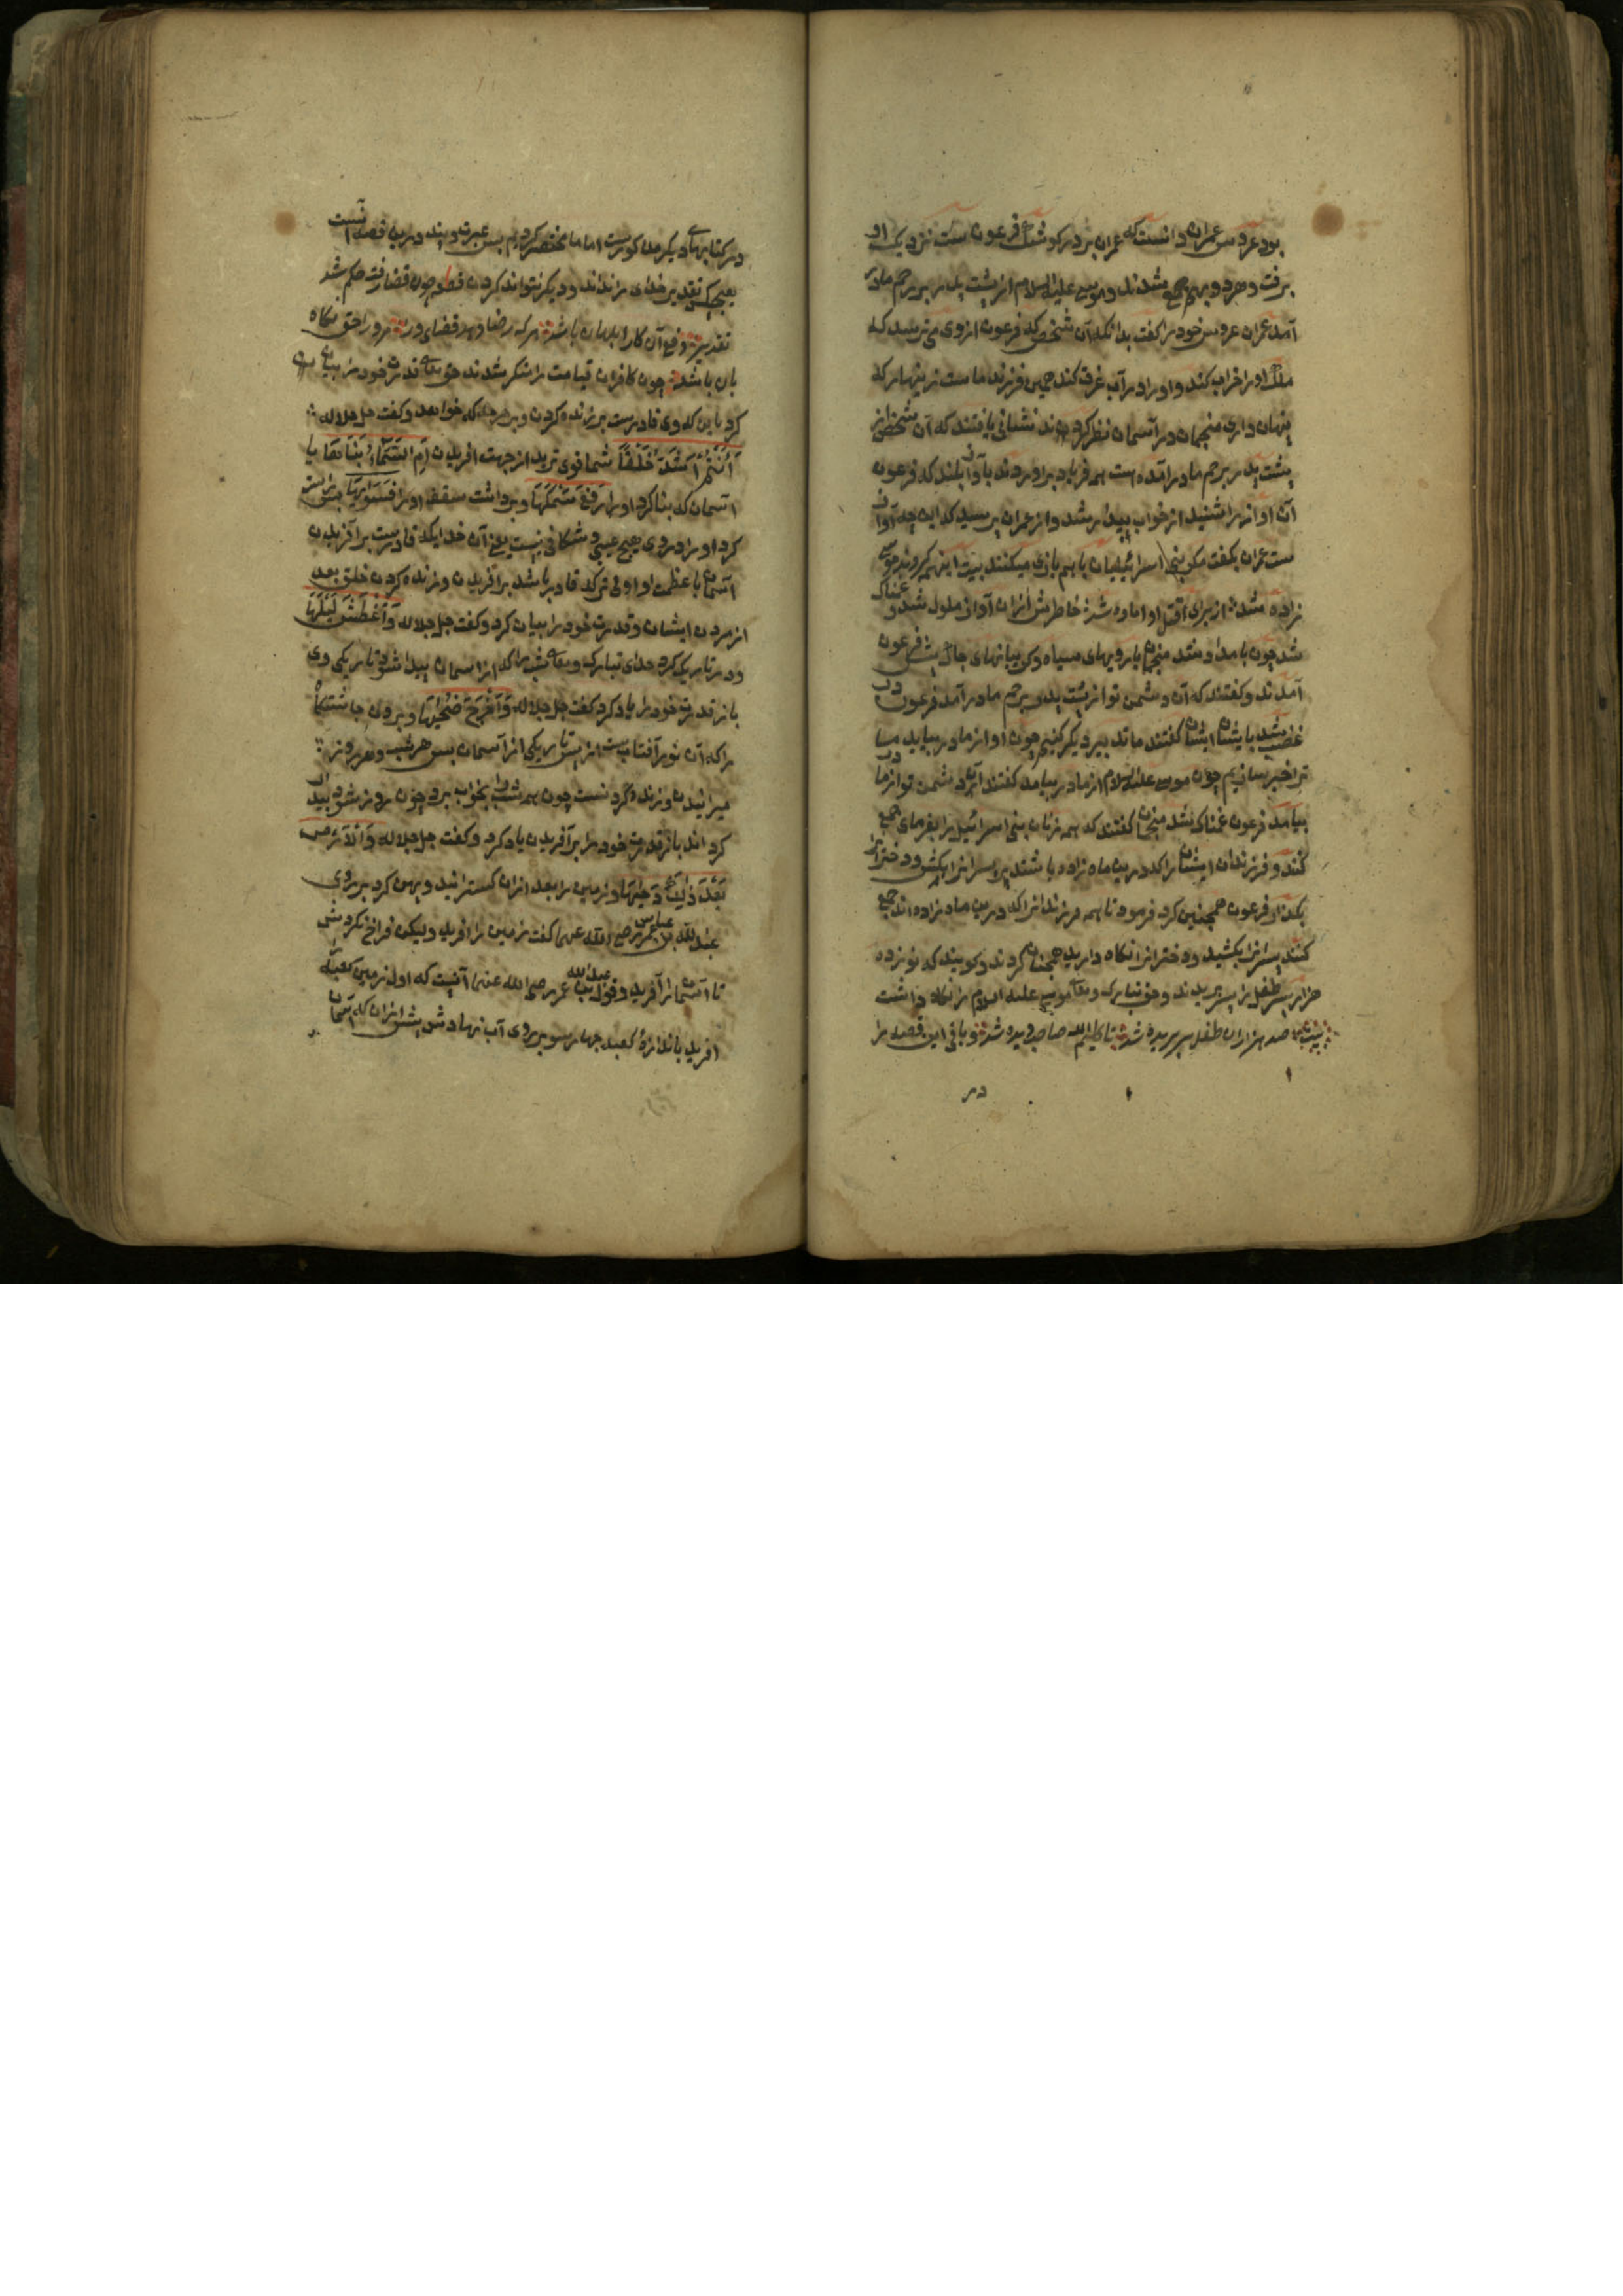 بود عروس عمران دانست که عمران بر در کوشک فرعون ست نزدیک او
برفت و هر دو بهم جمع شدند و موسی علیه السلام از پشت پدر بر رحم مادر
آمد عمران عروس خود را کفت بدانکه آن شخص که فرعون از وی می ترسید که
ملک او را خراب کند و او را در آب غرق کند همین فرزند ماست زینهار که
پنهان داری منجمان در آسمان نظر کرده بودند نشانی یافتند که آن شخص از
پشت پدر بر رحم مادر آمده است همه فریاد براوردند بآواز بلند که فرعون
آن اواز را شنید از خواب بیدار شد و از عمران پرسید که این چه آواز
ست عمران بکفت مکر بنی اسرائیلیان باهم بازی میکنند بیت اینهمه کروند موسی
زاده شد از برای قتل او اماده شد خاطرش ازان آواز ملول شد و غمناک
شد چون بامداد شد منجمان با رویهای سیاه و کریبانهای چاک پیش فرعون
آمدند و کفتند که آن دشمن تو از پشت پدر برحم مادر آمد فرعون در
غضب شد بایشان ایشان کفتند ما تدبیر دیکر کنیم چون او از مادر بیاید ما
ترا خبر رسانیم چون موسی علیه السلام از مادر بیامد کفتند آن دشمن تو از مادر
بیامد فرعون غمناک شد منجمان کفتند که همه زنان بنی اسرائیل را بفرمای جمع
کنند و فرزندان ایشان را که درین ماه زاده باشند پسرانرا بکش و دخترانرا
بکذار فرعون همچنین کرد فرمود تا همه فرزندانرا که درین ماه زاده اند جمع
کنند پسرانرا بکشید و دخترانرا نکاه دارید همچنان کردند و کویند که نوزده
هزار پسر طفل را سر بریدند و حق تبارک و تعالی موسی علیه السلام را نکاه داشت
بیت صد هزاران طفل سر بریده شد تا کلیم الله صاحب دیده شد و باقی این قصه را
در
در کتابهای دیکر مذکورست اما ما مختصر کردیم پس عبرت و پند درین قصه آنست
تقدیر خدای را نداند و دیکر نتواند کردن قطعه چون قضا رفت حکم شد
تقدیر دفع آن کار ابلهان باشد هر که رضا دهد قضای ورا مر ورا حق نکاه
بان باشد چون کافران قیامت را منکر شدند حق تعالی قدرت خود را بیان
کرد باین که وی قادرست بر زنده کردن و بر هر چه که خواهد و کفت جل جلاله
أَأَنتُمْ أَشَدُّ خَلْقًا شما قوی ترید از جهت افریدن أَمِ السَّمَاءُ بَنَاهَا یا
آسمان که بنا کرد او را رَفَعَ سَمْكَهَا و برداشت سقف او را فَسَوَّاهَا پس راست
کرد او را در وی هیچ عیبی و شکافی نیست یعنی آن خدایکه قادرست بر آفریدن
آسمان با عظمت او اولی تر که قادر باشد بر آفریدن و زنده کردن خلق بعد
از مردن ایشان و قدرت خود را بیان کرد و کفت جل جلاله وَأَغْطَشَ لَيْلَهَا
و در تاریک کرد خدای تبارک و تعالی شب را که از اسمان پیدا شود تاریکی وی
باز قدرت خود را یاد کرد کفت جل جلاله وَأَخْرَجَ ضُحَاهَا و برون چاشتکاه
را که آن نور آفتابست از پس تاریکی از آسمان پس هر شب و هر روز
میرانیدن و زنده کردنست چون همه شب بخواب برد چون روز شود بیدار
کرداند باز قدرت خود را بر آفریدن یاد کرد و کفت جل جلاله وَالْأَرْضَ
بَعْدَ ذَٰلِكَ دَحَاهَا و زمین را بعد ازان کسترانید و پهن کرد بر روی
عبد الله بن عباس رضی الله عنهما کفت زمین را افرید ولیکن فراخ نکردش
تا آسمان را آفرید و قول عبد الله بن عمر رضی الله عنهما آنست که اول زمین کعبه
افرید باندازهٔ کعبه چهار سو بر روی آب نهادش پیش ازان که آسمان